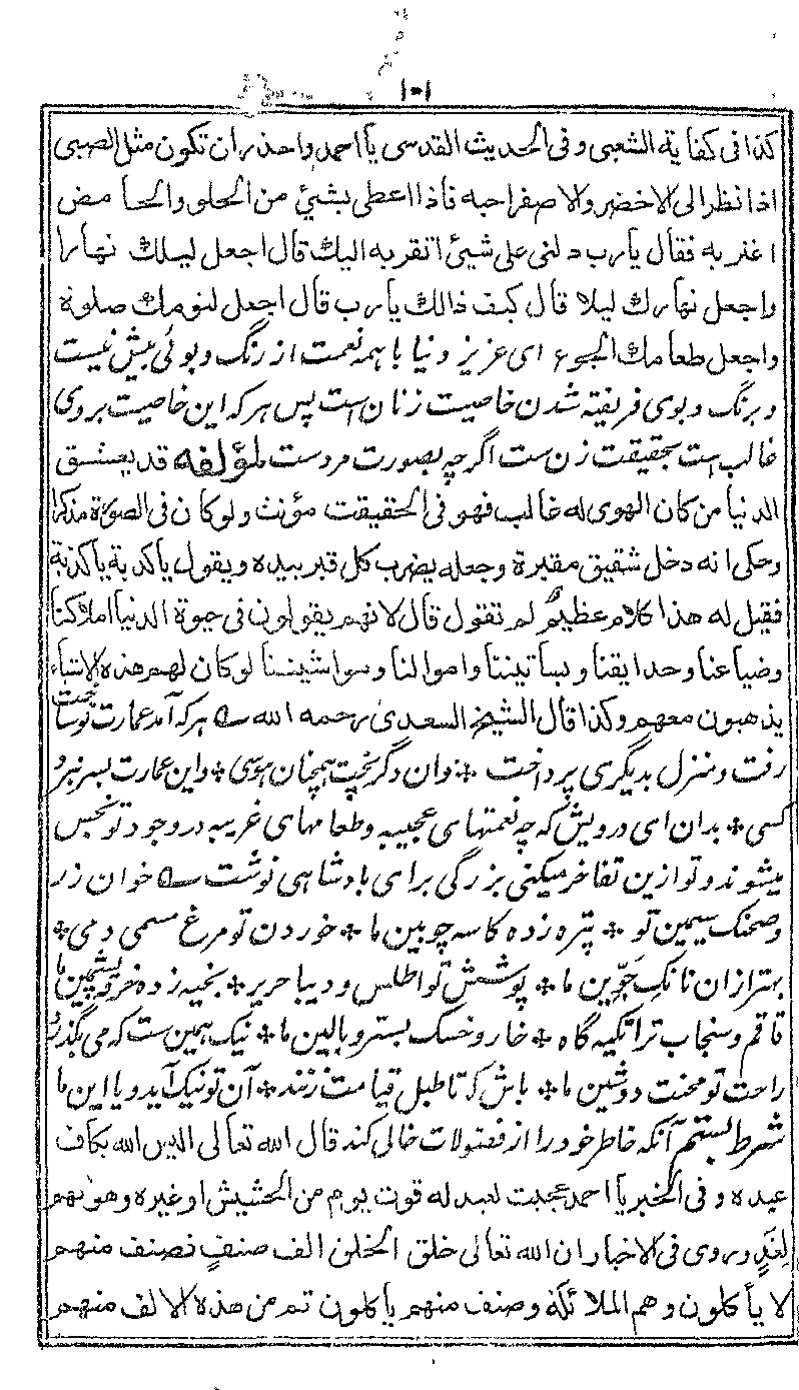 ١٠١
كذا فى كفاية الشعبى وفى الحديث القدسى يا احمد واحذر ان تكون مثل الصبى
اذا نظر الى الاخضر والاصفر احبه فاذا اعطى بشيئ من الحلو والحامض
اغتر به فقال يا رب دلنى على شيئ اتقرب به اليك قال اجعل ليلك نهارا
واجعل نهارك ليلا قال كيف ذالك يا رب قال اجعل لنومك صلوة
واجعل طعامك الجوع اى عزيز دنيا با همه نعمت از رنگ و بوئى بيش نيست
و برنگ و بوى فريفته شدن خاصيت زنان است پس هر كه اين خاصيت بروى
غالب است بحقيقت زن ست اگرچه بصورت مردست لمؤلفه قد يعشق
الدنيا من كان الهوى له غالب فهو فى الحقيقت مؤنث ولو كان فى الصورة مذكرا
وحكى انه دخل شقيق مقبرة وجعله يضرب كل قبر بيده ويقول يا كذبة يا كذبة
فقيل له هذا كلام عظيم لم تقول قال لانهم يقولون فى حيوة الدنيا املاكنا
وضياعنا وحدايقنا وبساتيننا واموالنا ومواشيننا لو كان لهم هذه الاشياء
يذهبون معهم وكذا قال الشيخ السعدى رحمه الله هر كه آمد عمارت نو ساخت
رفت و منزل بديگرى پرداخت * وان دگر پخت همچنان هوسى * واين عمارت بسر نبرد
كسى * بدان اى درويش كه چه نعمتهاى عجيبه و طعامهاى غريبه در وجود تو نجس
ميشوند و تو ازين تفاخر ميكنى بزرگى براى بادشاهى نوشت خوان زر
و صحنك سيمين تو * پتره زده كاسه چوبين ما * خوردن تو مرغ مسمى و مى *
بهتر ازان نانك جوين ما * پوشش تو اطلس و ديبا حرير * بخيه زده خرقه پشمين ما
قاقم و سنجاب ترا تكيه گاه * خار و خسك بستر و بالين ما * نيك همين ست كه مى بگذرد
راحت تو محنت دوشين ما * باش كه تا طبل قيامت زنند * آن تو نيك آيد و يا اين ما
شرط بستم آنكه خاطر خود را از فضولات خالى كند قال الله تعالى اليس الله بكاف
عبده وفى الخبر يا احمد عجبت لعبد له قوت يوم من الحشيش او غيره وهو يهم
لغد وروى فى الاخبار ان الله تعالى خلق الخلق الف صنف فصنف منهم
لا يأكلون وهم الملائكة وصنف منهم يأكلون ثم من هذه الالف منهم